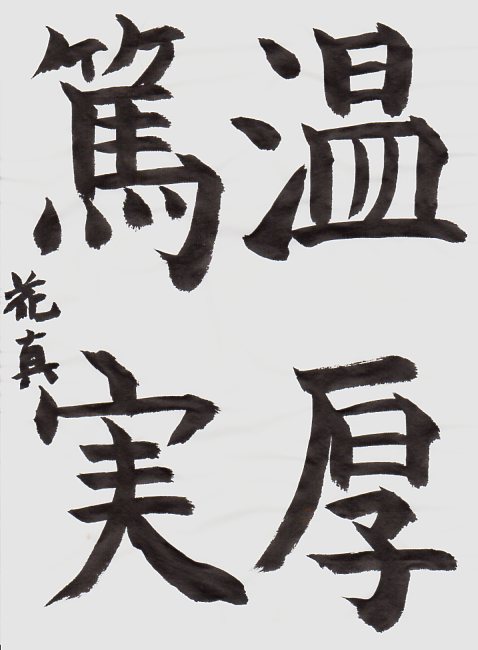 温厚
篤実
花真